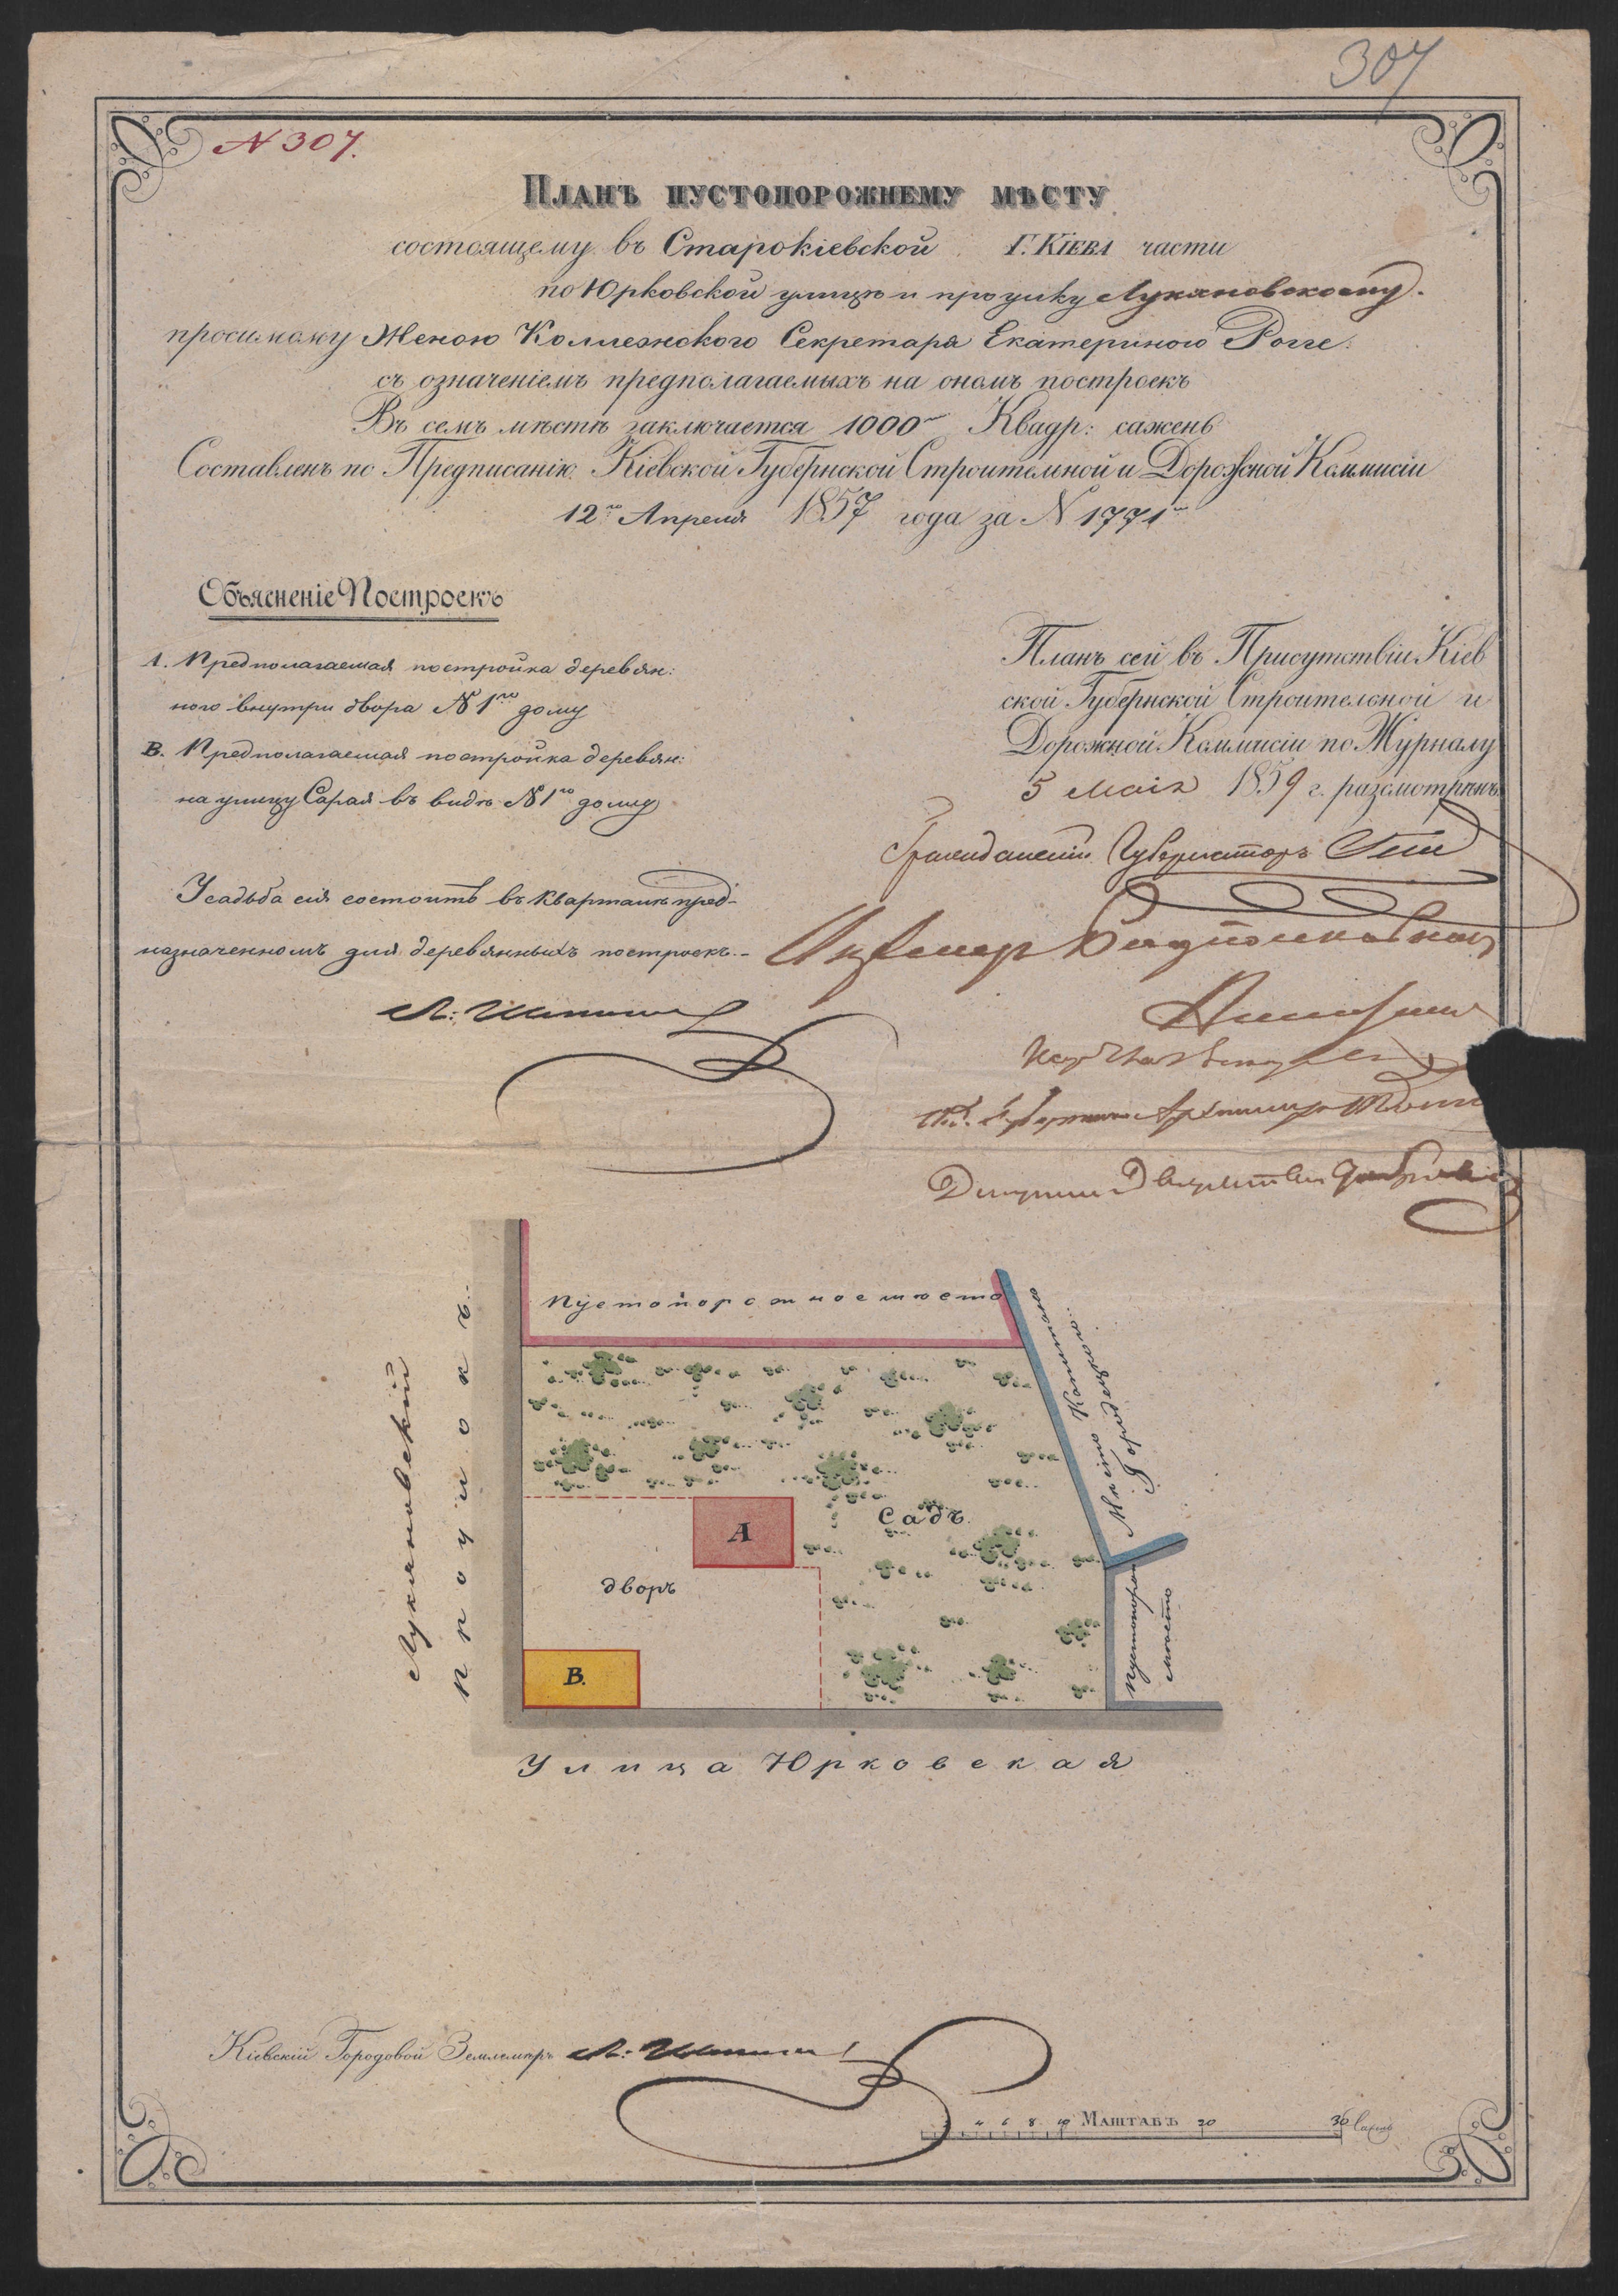 307
N 307.
Планъ пустопорожнему мѣсту
состоящему въ Старокіевской Г. Кіева части
по Юрковской улицѣ и проулку Лукяновскому.
просимому Женою Коллежского Секретаря Екатериною Рогге.
съ означеніемъ предполагаемыхъ на ономъ построекъ
Въ семъ мѣстѣ заключается 1000 Квадр: сажень
Составленъ по Предписанію Кіевской Губернской Строительной и Дорожной Коммисіи
12го Апреля 1857 года за N 1771м
Объясненіе Построекъ
А. Предполагаемая постройка деревян:
ного внутри двора N 1го дому
В. Предполагаемая постройка деревян:
на улицу Сарая въ видѣ N 1го дому
Усадьба сія состоитъ въ кварталѣ пред-
назначенномъ для деревянныхъ построекъ.-
Планъ сей въ Присутствіи Кіев
ской Губернской Строительной и
Дорожной Коммисіи по Журналу
5 Маія 1859 г. разсмотрѣнъ
Гражданскій Губернаторъ
Инженер Подполковник
Пустопорожное мѣсто
Мѣсто Капитана
Городецкого.
Садъ.
А
дворъ
В.
Пустопорож
мѣсто
Лукяновскій
проулокъ.
Улица Юрковская
Кіевскій Городовой Землемѣръ
4 6 8 10 Маштабъ 20 30 Сажень